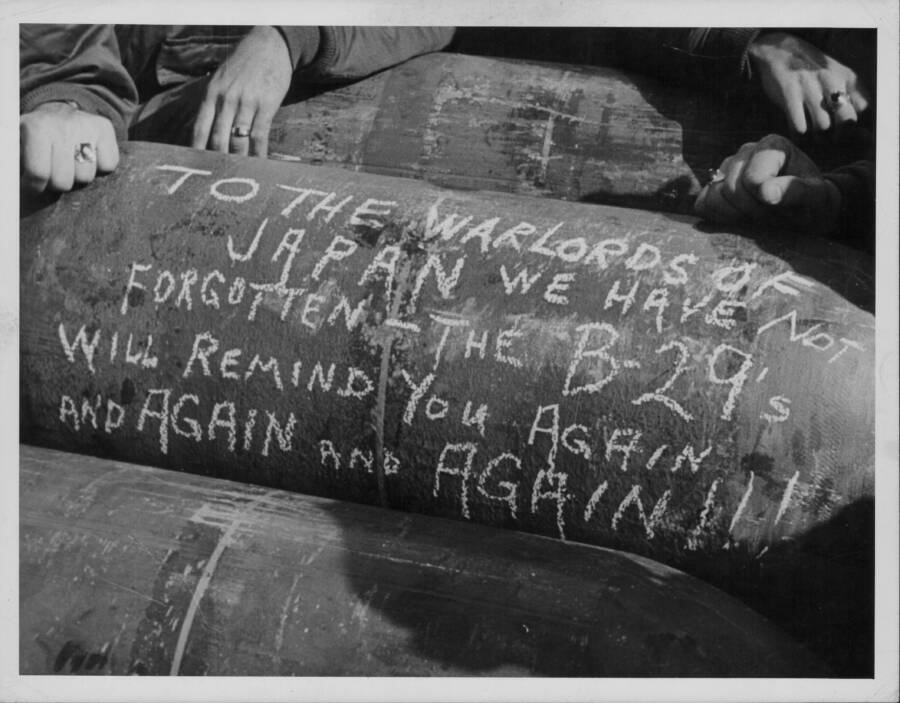 TO THE WARLORDS OF
JAPAN WE HAVE NOT
FORGOTTEN – THE B-29's
WILL REMIND YOU AGAIN
AND AGAIN AND AGAIN!!!